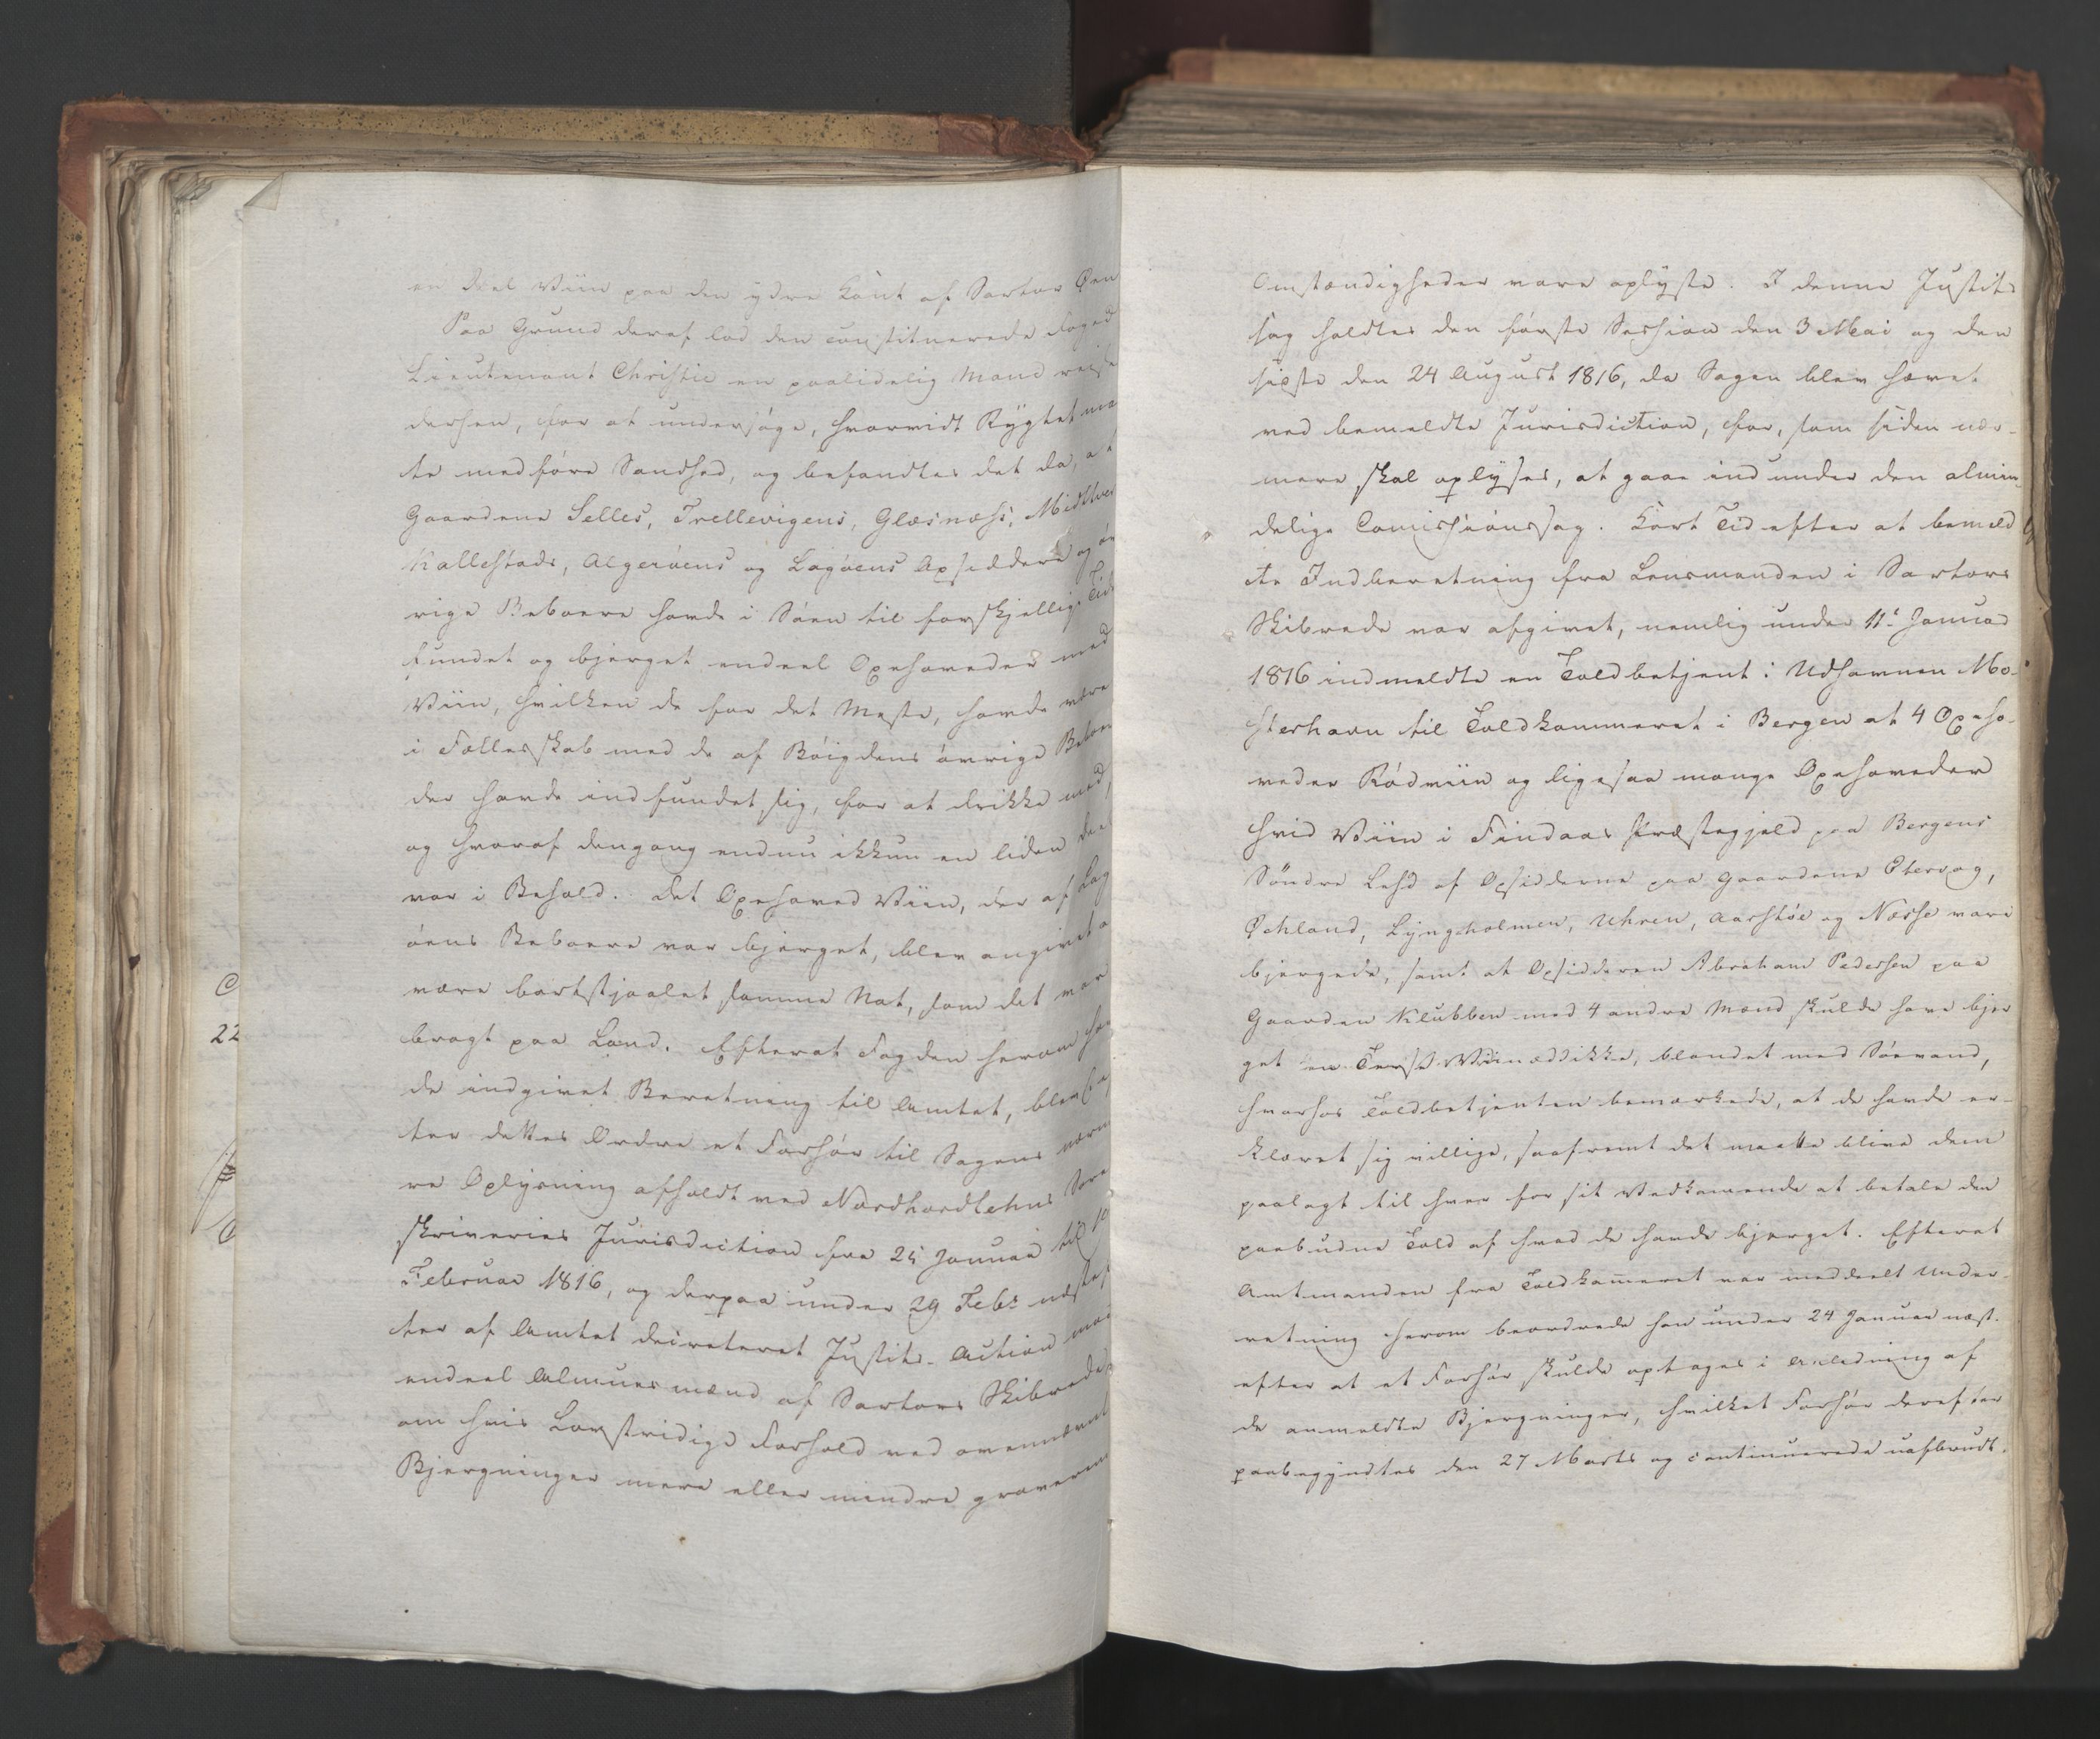 en deel Viin paa den ydre Kant af Sartor Øen
Paa Grund deraf lod den constituerede Foged
Lieutenant Christie en paalidelig Mand reise
dershen, for at undersøge, hvorvidt Rygtet maa
te medføre Sandhed, og befandtes det da, at
Gaardene Selles, Trellevigens, Glæsnæss,
Kallestads, Algerøens og Lagøens Opsiddere og øv
rige Beboere havde i Søen til forskjellige Tid
fundet og bjerget endeel Oxehoveder med
Viin, hvilken de for det Meste, havde
i Fællesskab med de af Bøigdens øvrige
der havde indfundet sig, for at drikke med,
og hvoraf dengang endnu ikkun en liden Deel
var i Behold. Det Oxehoved Viin, der af Lag
øens Beboere var bjerget, blev angivet a
være bortstjaalet samme Nat, som det var
bragt paa Land. Efterat Fogden herom hav
de indgivet Beretning til Amtet, blev
ter dettes Ordre et Forhør til Sagens nærme
re Oplysning afholdt ved Nordhordlehns Sore
skriveries Jurisdiction fra 25 Januar til 10
Februar 1816, og derpaa under 29 Febr næstef
ter af Amtet decreteret Justits-Action mod
endeel Almuesmænd af Sartors Skibrede,
om hvis Lovstridige Forhold ved ovennævnte
Bjergninger mere eller mindre graverende
Omstændigheder vare oplyste. I denne Justits
sag holdtes den første Session den 3 Mai og den
sidste den 24 August 1816, da Sagen blev hævet
ved bemeldte Jurisdiction, for, som siden nær-
mere skal oplyses, at gaae ind under den almin-
delige Comissionssag. Kort Tid efter at bemeld
te Indberetning fra Lensmanden i Sartors
Skibrede var afgivet, nemlig under 11te Januar
1816 indmeldte en Toldbetjent i Udhavnen Mo-
sterhavn til Toldkammeret i Bergen at 4 Oxeho-
veder Rødviin og ligesaa mange Oxehoveder
hvid Viin i Findaas Præstegjeld paa Bergens
Søndre Lehd af Opsidderne paa Gaardene
Økland, Lyngholmen, Uhren, Aarstøe og Næsse vare
bjergede, samt at Opsidderen Abraham Pedersen paa
Gaarden Klubben med 4 andre Mænd skulde have bjer
get en Terst Viinæddikke, blandet med Søevand,
hvorhos Toldbetjenten bemærkede, at de havde er-
klæret sig villige, saafremt det maatte blive dem
paalagt til hver for sit Vedkomende at betale den
paabudne Told af hvad de havde bjerget. Efterat
Amtmanden fra Toldkameret var meddeelt Under-
retning herom beordrede han under 24 Januar næst-
efter at et Forhør skulde optages i Anledning af
de anmeldte Bjergninger, hvilket Forhør derefter
paabegyndtes den 27 Marts og continuerede uafbrudt.
C
22